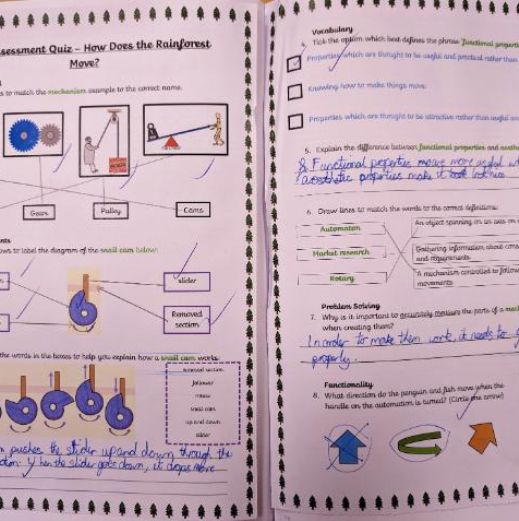 ssessment Quiz – How Does the Rainforest
Move?
s to match the mechanism example to the correct name.
Gears
Pulley
Cams
nts
ows to label the diagram of the snail cam below.
slider
Removed
section
the words in the boxes to help you explain how a snail cam works.
removed section
follower
snail cam
up and down
slider
pushes the slider up and down through the
when the slider goes down, it drops more
Vocabulary
Tick the option which best defines the phrase 'functional propert
Properties which are thought to be useful and practical rather than
Knowing how to make things move.
Properties which are thought to be attractive rather than useful an
5. Explain the difference between functional properties and aesthe
Functional properties means more useful w
aesthetic properties make it look nice
6. Draw lines to match the words to the correct definitions.
Automaton
Market research
Rotary
An object spinning on an axis on
Gathering information about cons
and requirements
A mechanism controlled to follow
movements
Problem Solving
7. Why is it important to accurately measure the parts of a mec
when creating them?
In order to make them work, it needs to
properly.
Functionality
8. What direction do the penguin and fish move when the
handle on the automaton is turned? (Circle one arrow)